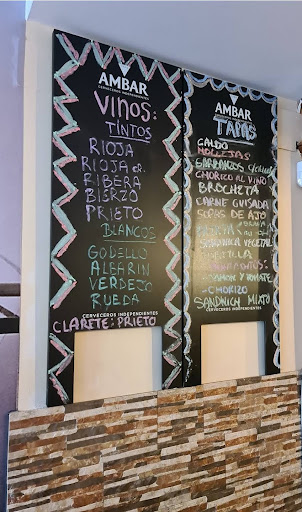 AMBAR
CERVECEROS INDEPENDIENTES
VINOS:
TINTOS
RIOJA
RIOJA CR.
RIBERA
BIERZO
PRIETO
BLANCOS
GODELLO
ALBARIN
VERDEJO
RUEDA
CERVECEROS INDEPENDIENTES
CLARETE: PRIETO
AMBAR
CERVECEROS INDEPENDIENTES
TAPAS
CALDO
MOLLEJAS
GARBANZOS
CHORICO AL VINO
BROCHETA
CARNE GUISADA
SOPAS DE AJO
SANDWICH VEGETAL
JAMON Y TOMATE
-CHORIZO
SANDWICH MIXTO
CERVECEROS INDEPENDIENTES